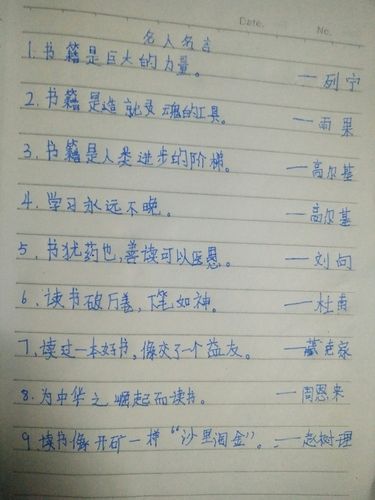 Date. No.
名人名言
1.书籍是巨大的力量。 ——列宁
2.书籍是造就灵魂的工具。 ——雨果
3.书籍是人类进步的阶梯。 ——高尔基
4.学习永远不晚。 ——高尔基
5.书犹药也,善读可以医愚。 ——刘向
6.读书破万卷,下笔如神。 ——杜甫
7.读过一本好书,像交了一个益友。 ——臧克家
8.为中华之崛起而读书。 ——周恩来
9.读书像开矿一样“沙里淘金”。 ——赵树理